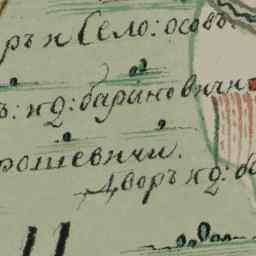 ръ и Село: осовъ
ъ: и д: бариновичи
рошевичи.
Дворъ и д: ба